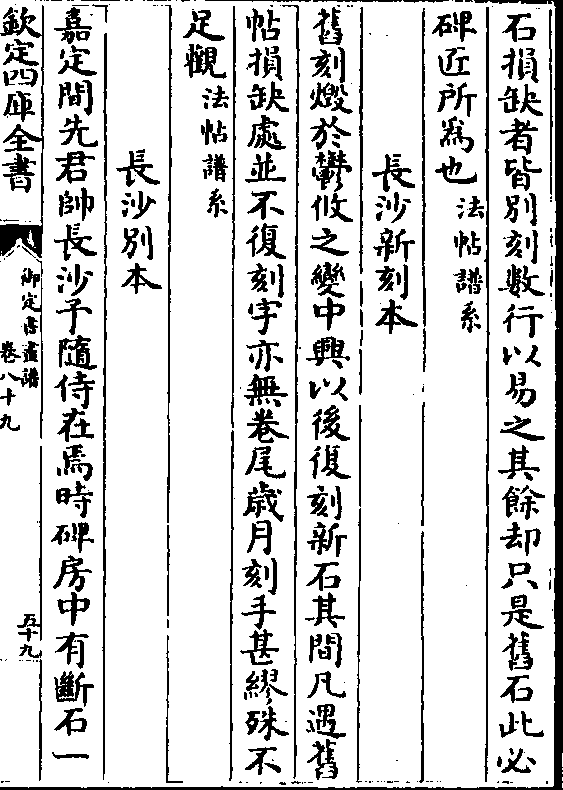 石損缺者皆別刻數行以易之其餘却只是舊石此必
碑匠所為也法帖譜系
長沙新刻本
舊刻燬於鬱攸之變中興以後復刻新石其間凡遇舊
帖損缺處並不復刻字亦無卷尾歲月刻手甚繆殊不
足觀法帖譜系
長沙別本
嘉定間先君帥長沙予隨侍在焉時碑房中有斷石一
欽定四庫全書
御定書畫譜
卷八十九
五十九